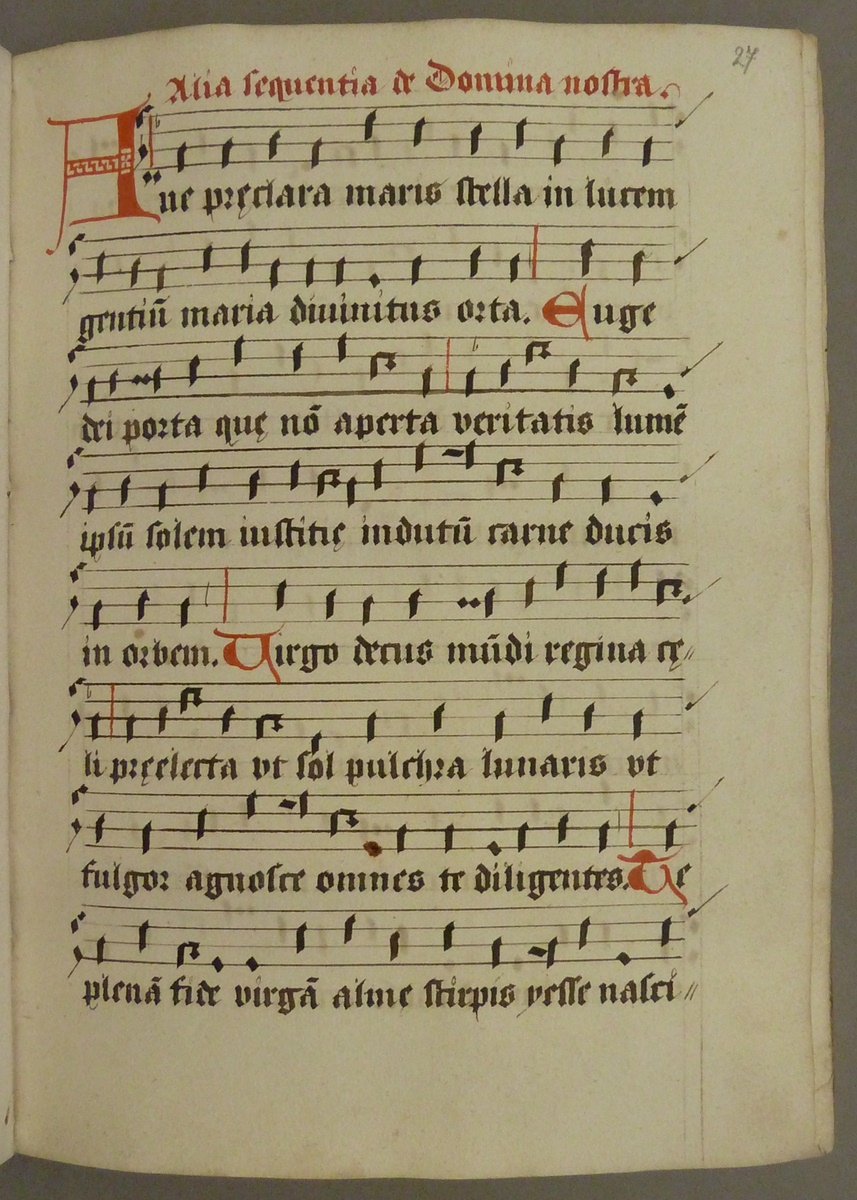 27
Alia sequentia de Domina nostra.
Aue pręclara maris stella in lucem
gentiū maria diuinitus orta. Euge
dei porta quę nō aperta veritatis lumē
ipsū solem iustitię indutū carne ducis
in orbem. Virgo decus mūdi regina cę〃
li pręelecta vt sol pulchra lunaris vt
fulgor agnosce omnes te diligentes. Te
plenā fide virgā almę stirpis yesse nasci〃